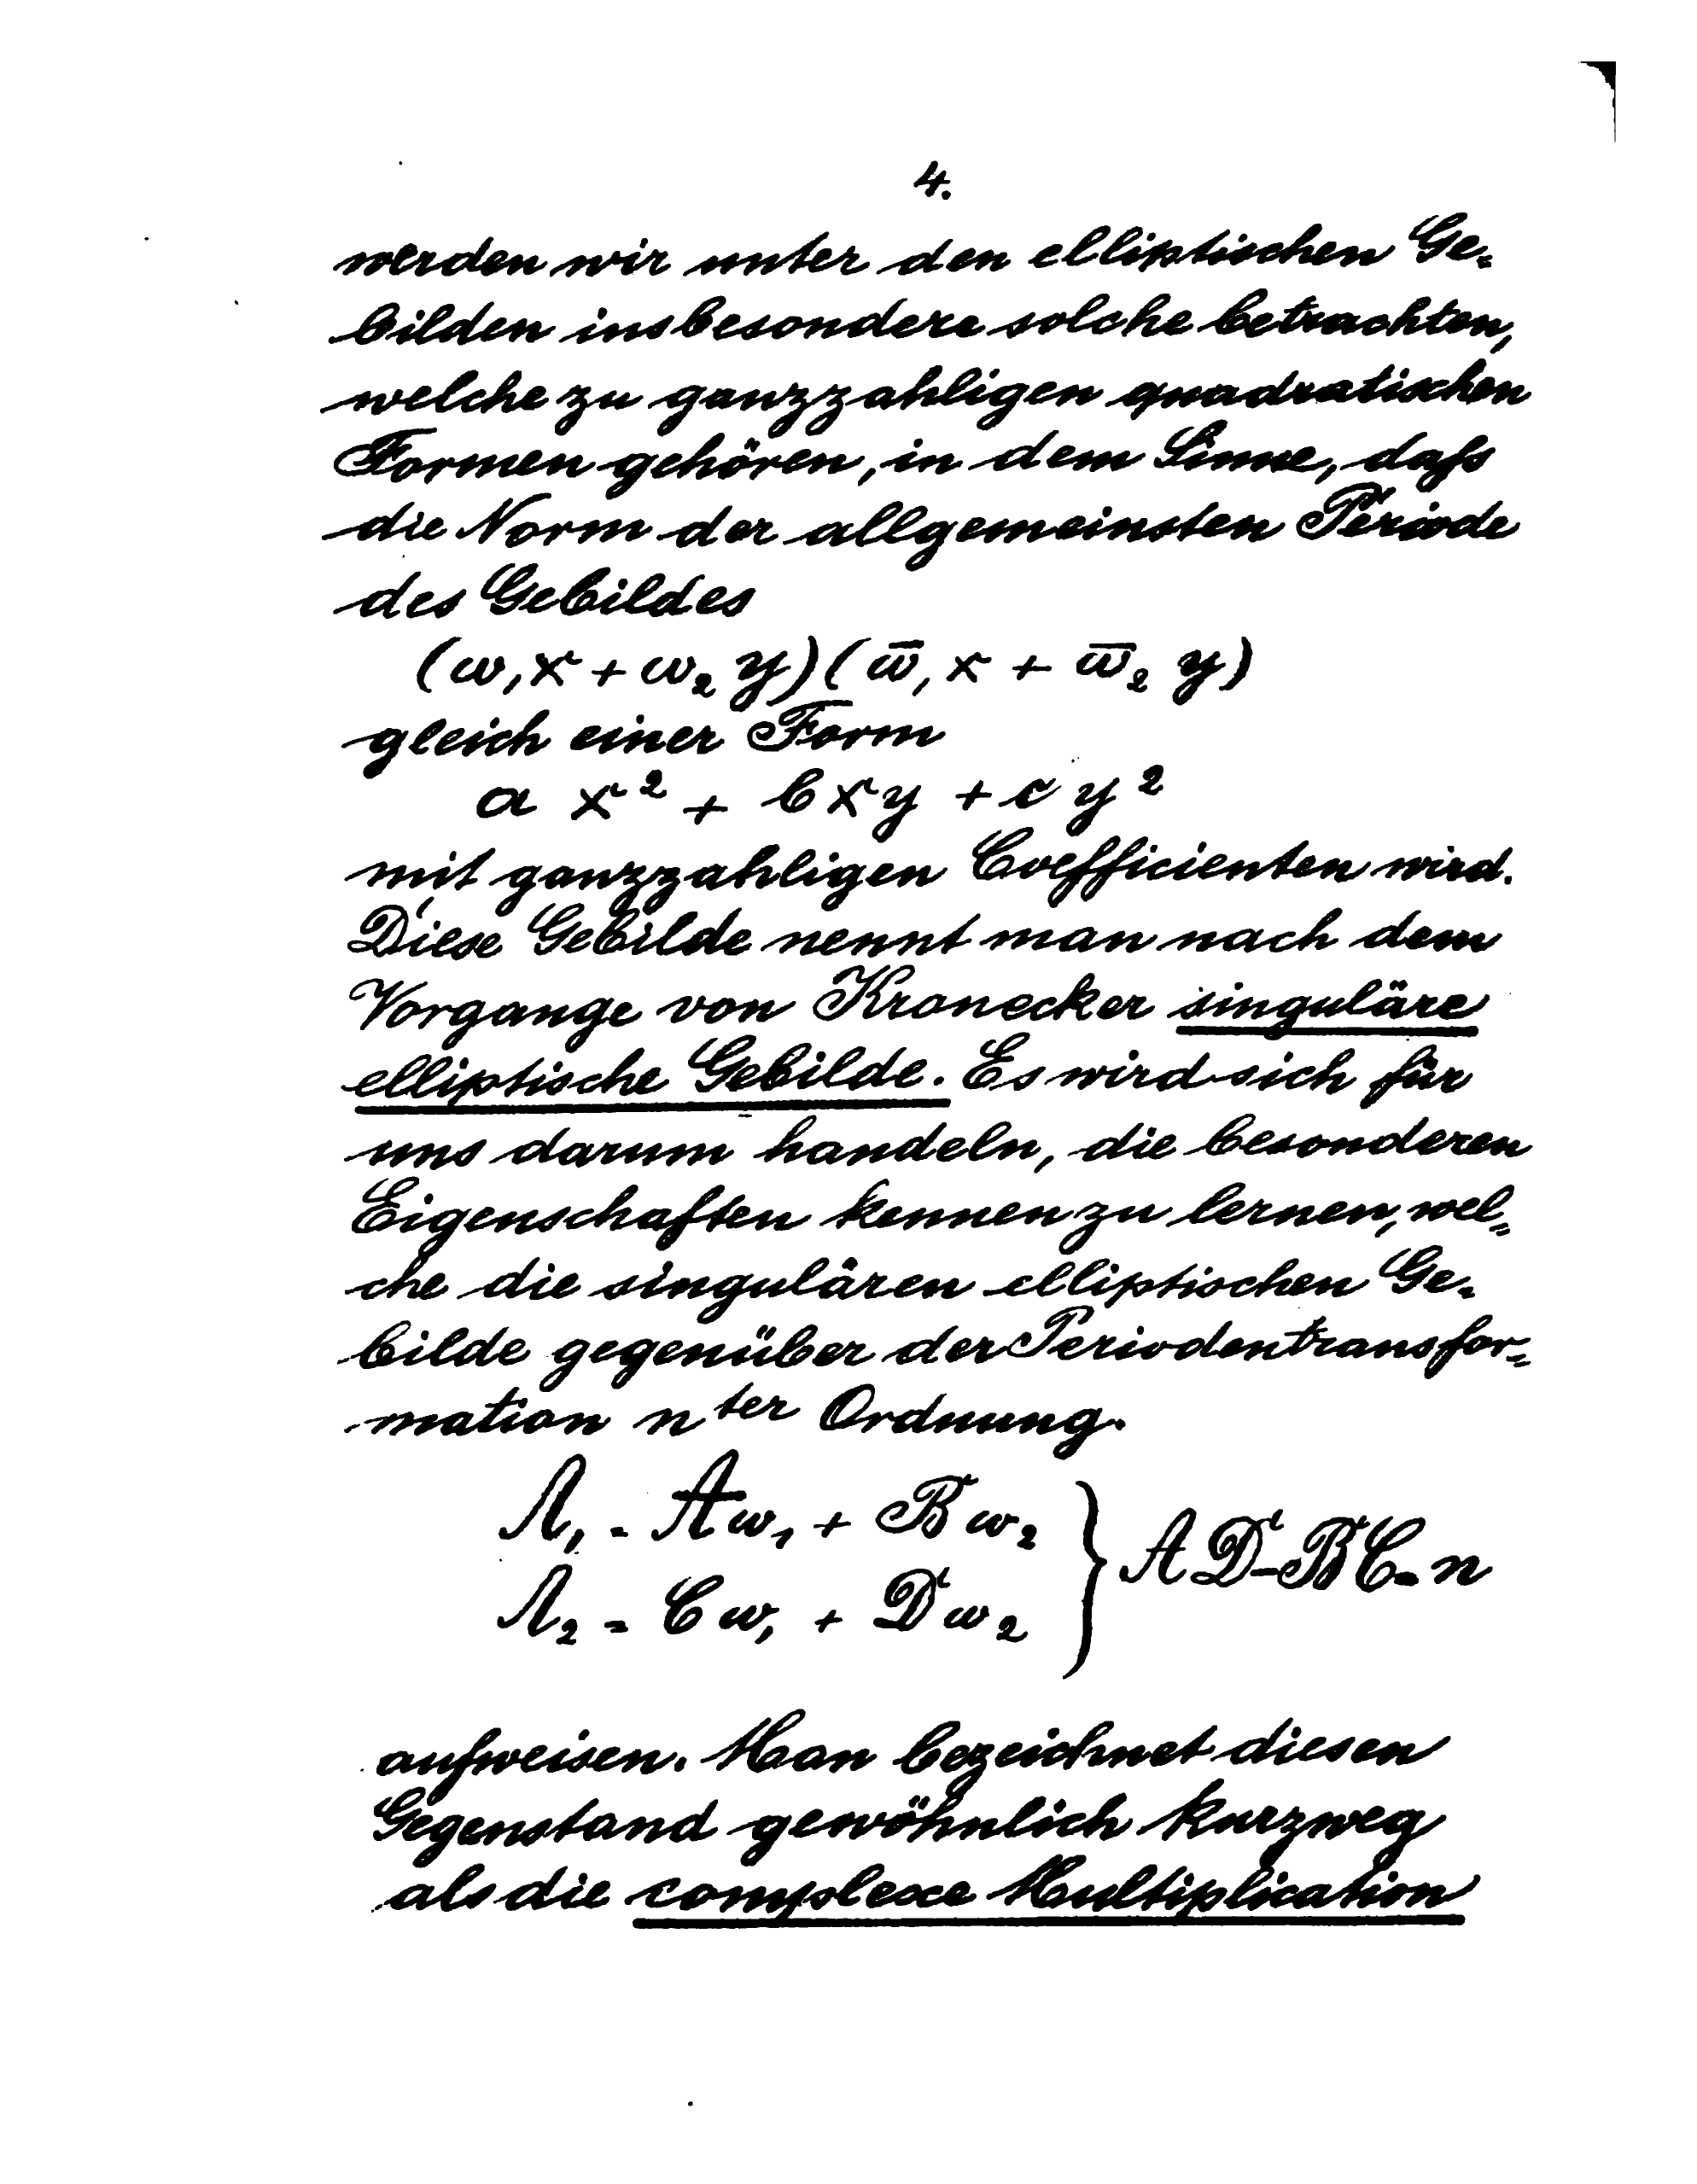 4.
werden wir unter den elliptischen Ge-
bilden insbesondere solche betrachten,
welche zu ganzzahligen quadratischen
Formen gehören, in dem Sinne, daſs
die Norm der allgemeinsten Periode
des Gebildes
(ω₁x + ω₂ y)(ω̄₁ x + ω̄₂ y)
gleich einer Form
a x² + bxy + c y²
mit ganzzahligen Coefficienten wird.
Diese Gebilde nennt man nach dem
Vorgange von Kronecker singuläre
elliptische Gebilde. Es wird sich für
uns darum handeln, die besonderen
Eigenschaften kennen zu lernen, wel-
che die singulären elliptischen Ge-
bilde gegenüber der Periodentransfor-
mation n ter Ordnung.
Λ₁ = Aω₁ + Bω₂
Λ₂ = Cω₁ + Dω₂ } AD-BC = n
aufweisen. Man bezeichnet diesen
Gegenstand gewöhnlich kurzweg
als die complexe Multiplication